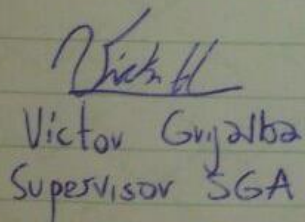 Victor Grijalba
Supervisor SGA